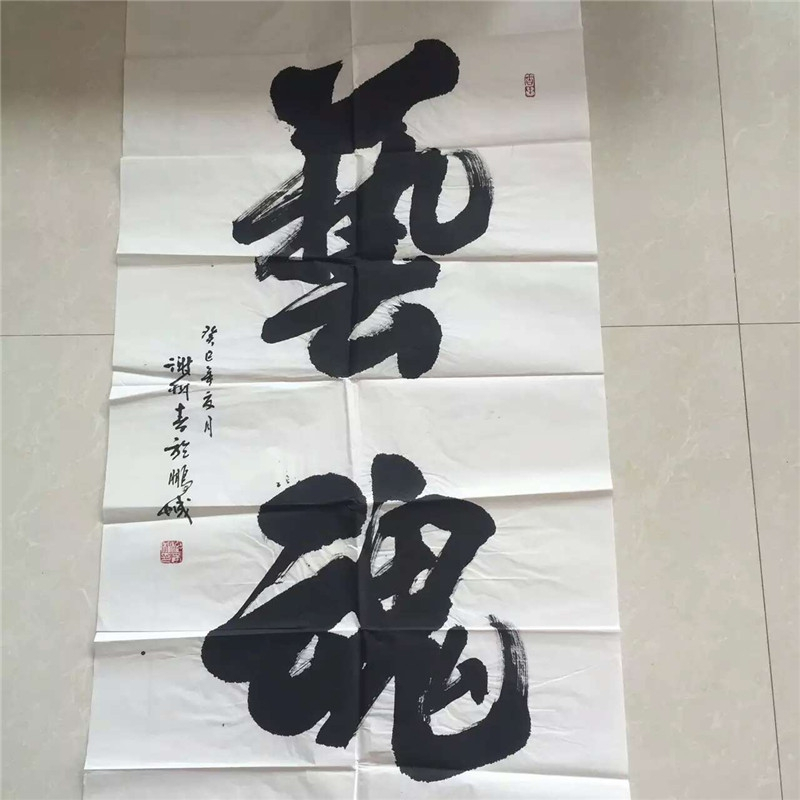 藝魂
癸巳年夏月
謝樹春於鵬城